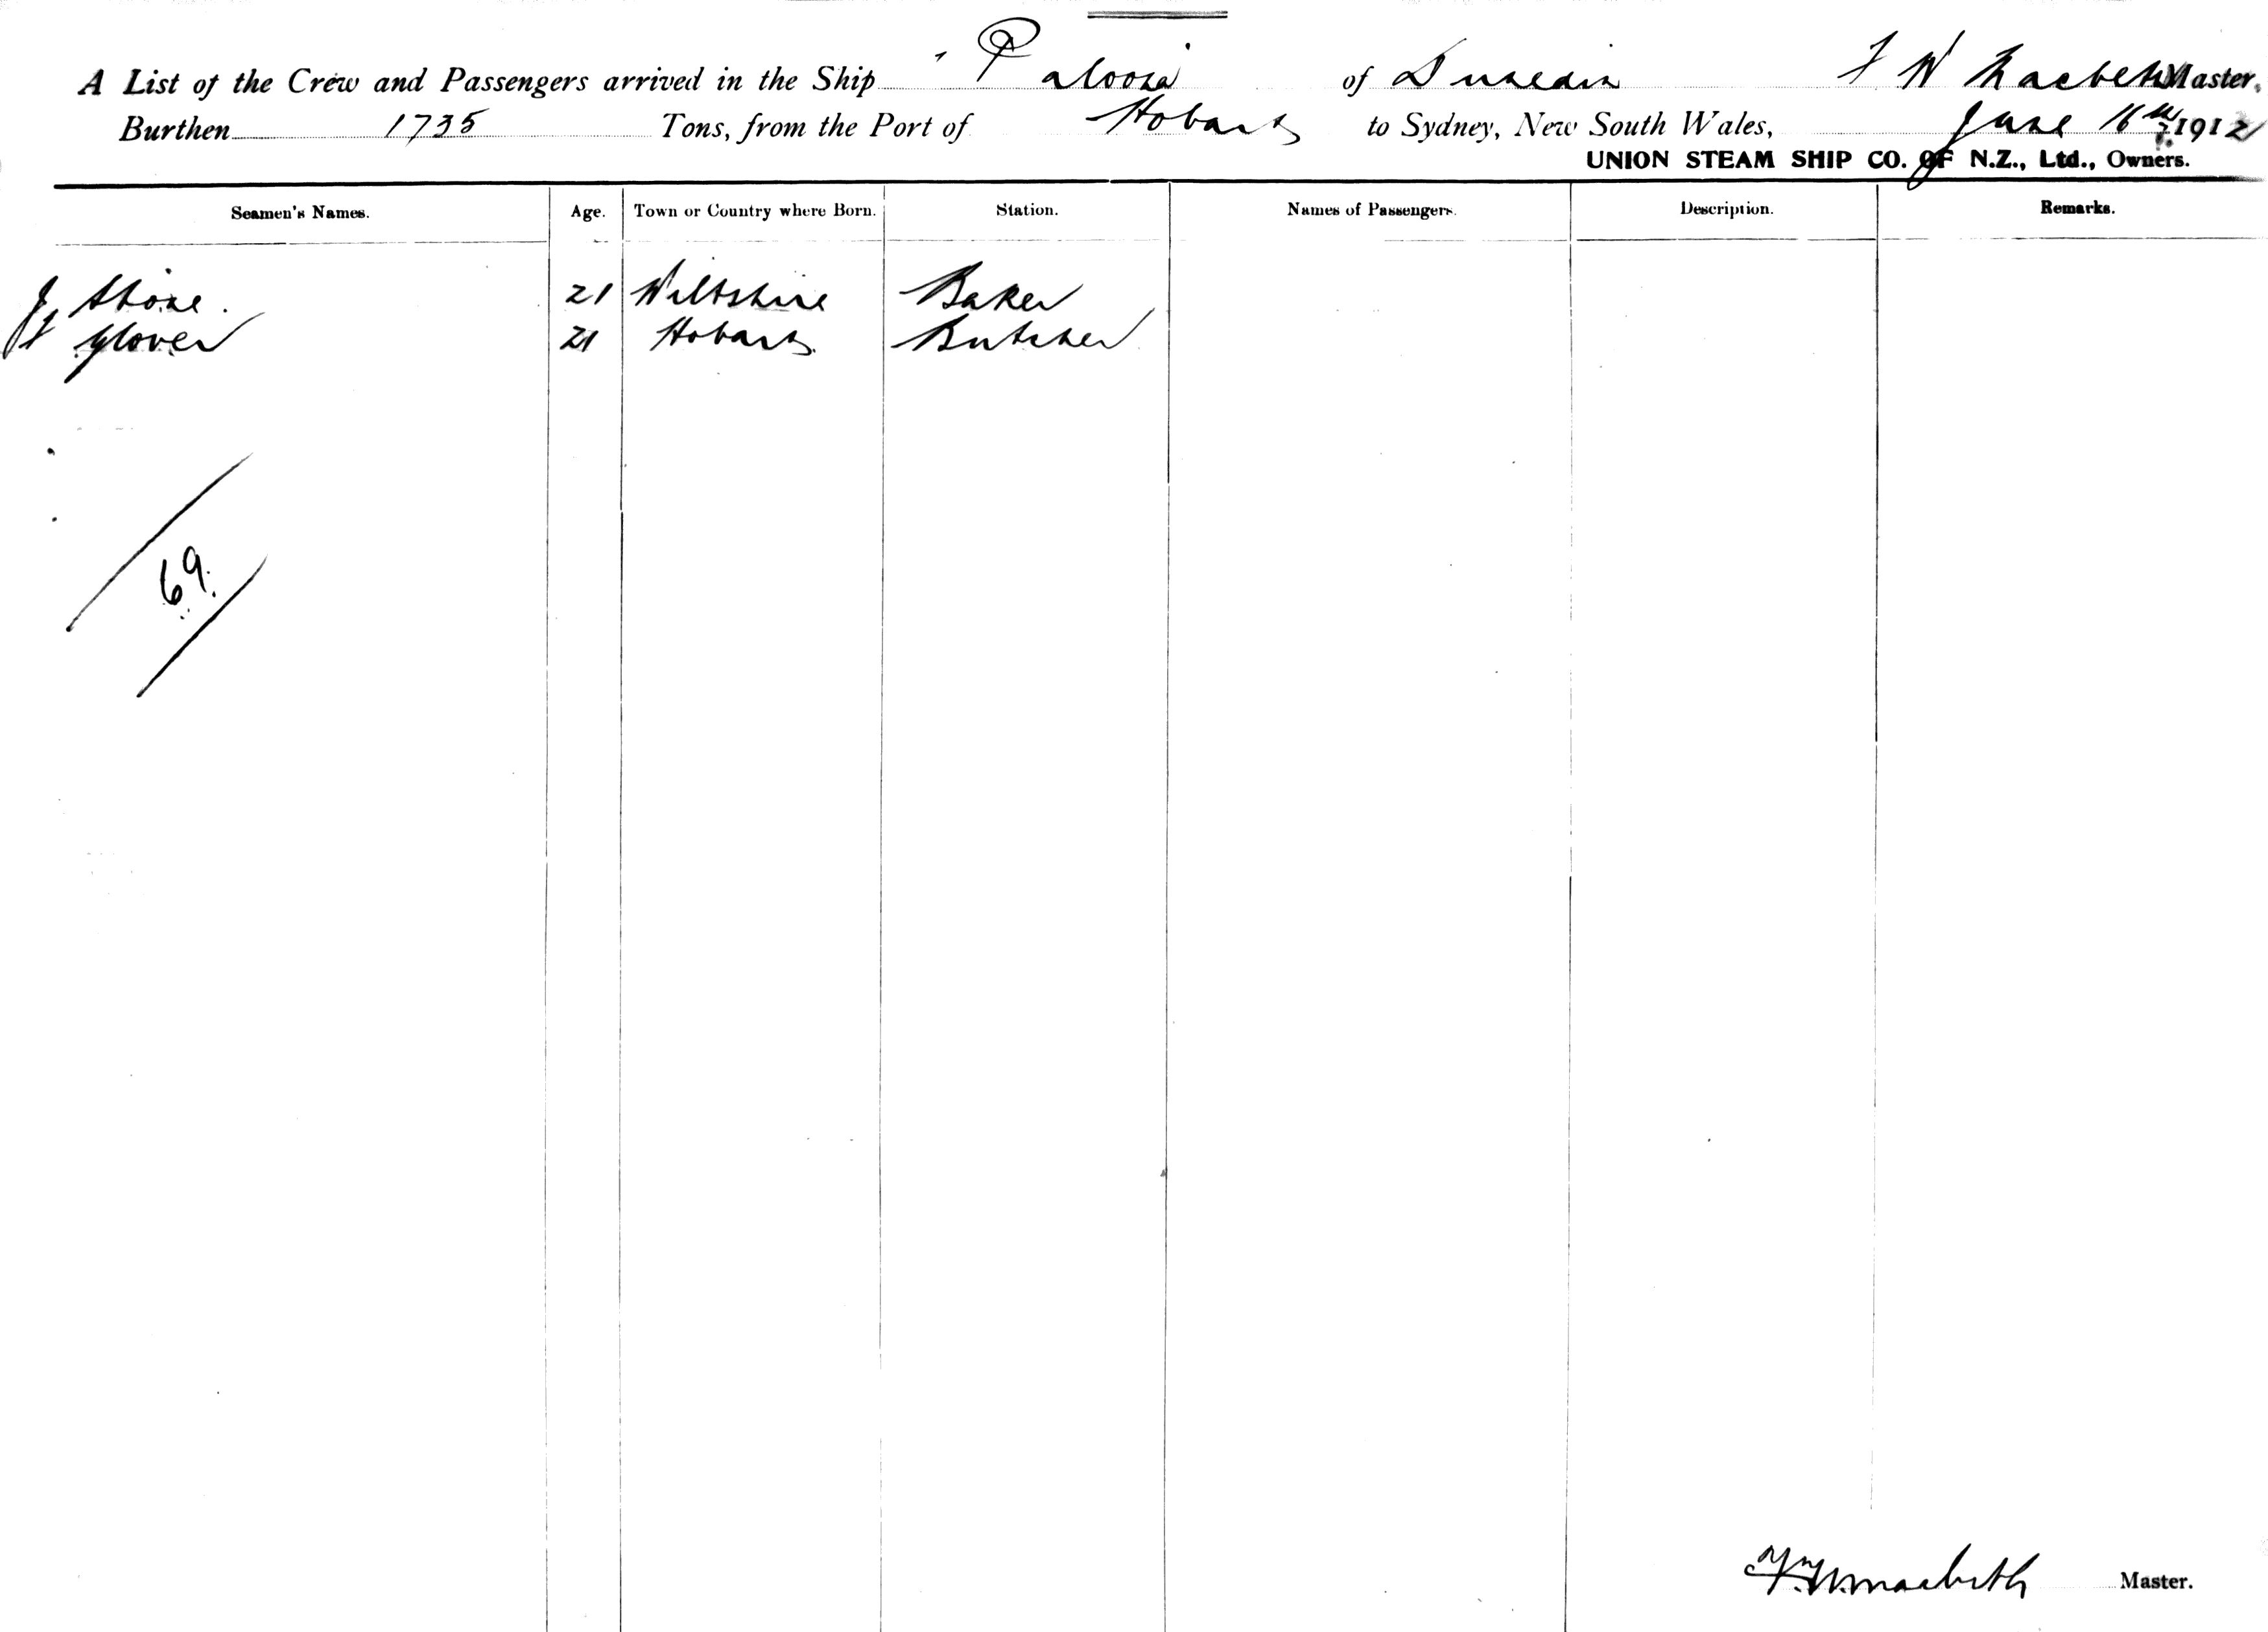 A List of the Crew and Passengers arrived in the Ship "Paloona of Dunedin F W Macbeth Master,
Burthen 1735 Tons, from the Port of Hobart to Sydney, New South Wales, June 16th 1912
UNION STEAM SHIP CO. OF N.Z., Ltd., Owners.
Seamen's Names. Age. Town or Country where Born. Station. Names of Passengers. Description. Remarks.
J Stone. 21 Wiltshire Baker
Glover 21 Hobart Butcher
69.
F. W. Macbeth Master.